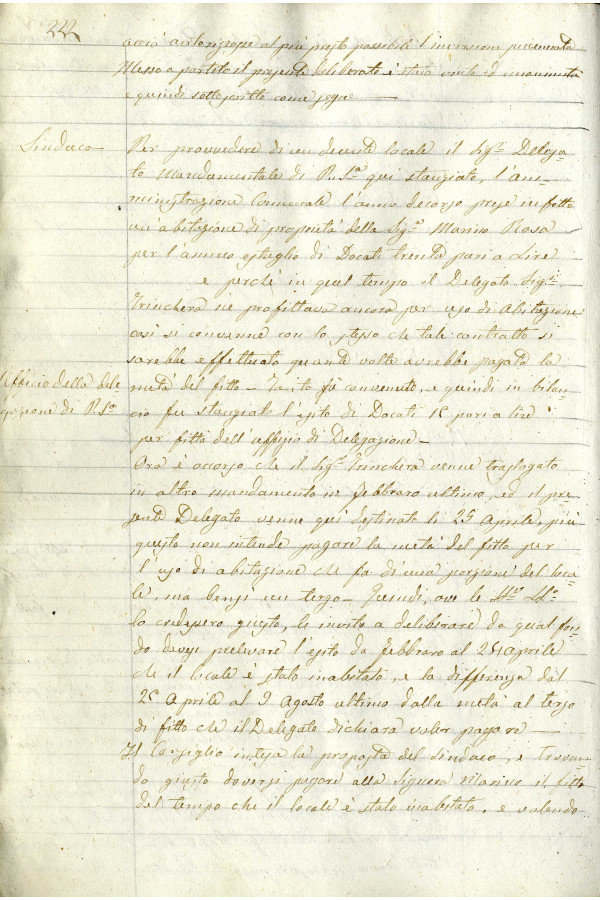 222
acciò autorizzasse al più presto possibile l'inversione precennata
Messo a partito il presente deliberato è stato vinto ad unanimità
e quindi sottoscritto come segue —
Sindaco
Per provvedere di un decente locale il Sig.r Delega=
to Mandamentale di P. S.a qui stanziato, l'am=
ministrazione Comunale l'anno decorso prese in fitto
un abitazione di proprietà della Sig.a Marino Rosa
per l'annuo estaglio di Docati trenta pari a Lire
e perchè in quel tempo il Delegato Sig.r
Trinchera ne profittava ancora per uso di abitazione
così si convenne con lo stesso che tale contratto si
sarebbe effettuato quante volte avrebbe pagata la
Ufficio della dele
gazione di P. S.a
metà del fitto — Tanto fu convenuto, e quindi in bilan=
cio fu stanziato l'esito di Docati 15 pari a lire
per fitto dell'uffizio di Delegazione —
Ora è occorso che il Sig.r Trinchera venne traslogato
in altro mandamento in febbraro ultimo, ed il pre=
sente Delegato venne qui destinato li 25 aprile, più
questo non intende pagare la metà del fitto per
l'uso di abitazione che fa di una porzione del loca=
le, ma bensì un terzo — Quindi, ove le
lo credessero giusto, le invito a deliberare da qual fon=
do devesi prelevare l'esito da febbraro al 25 aprile
che il locale è stato inabitato, e la differenza dal
25 Aprile al 9 Agosto ultimo dalla metà al terzo
di fitto che il Delegato dichiara voler pagare —
Il Consiglio intesa la proposta del sindaco, e trovan=
do giusto doversi pagare alla Signora Marino il fitto
del tempo che il locale è stato inabitato, e volendo